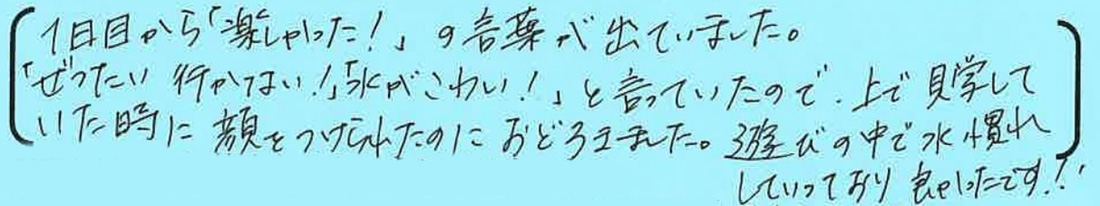 1日目から「楽しかった!」の言葉が出ていました。
「ぜったい行かない!」「水がこわい!」と言っていたので、上で見学して
いた時に顔をつけられたのにおどろきました。遊びの中で水慣れ
していっており良かったです!!